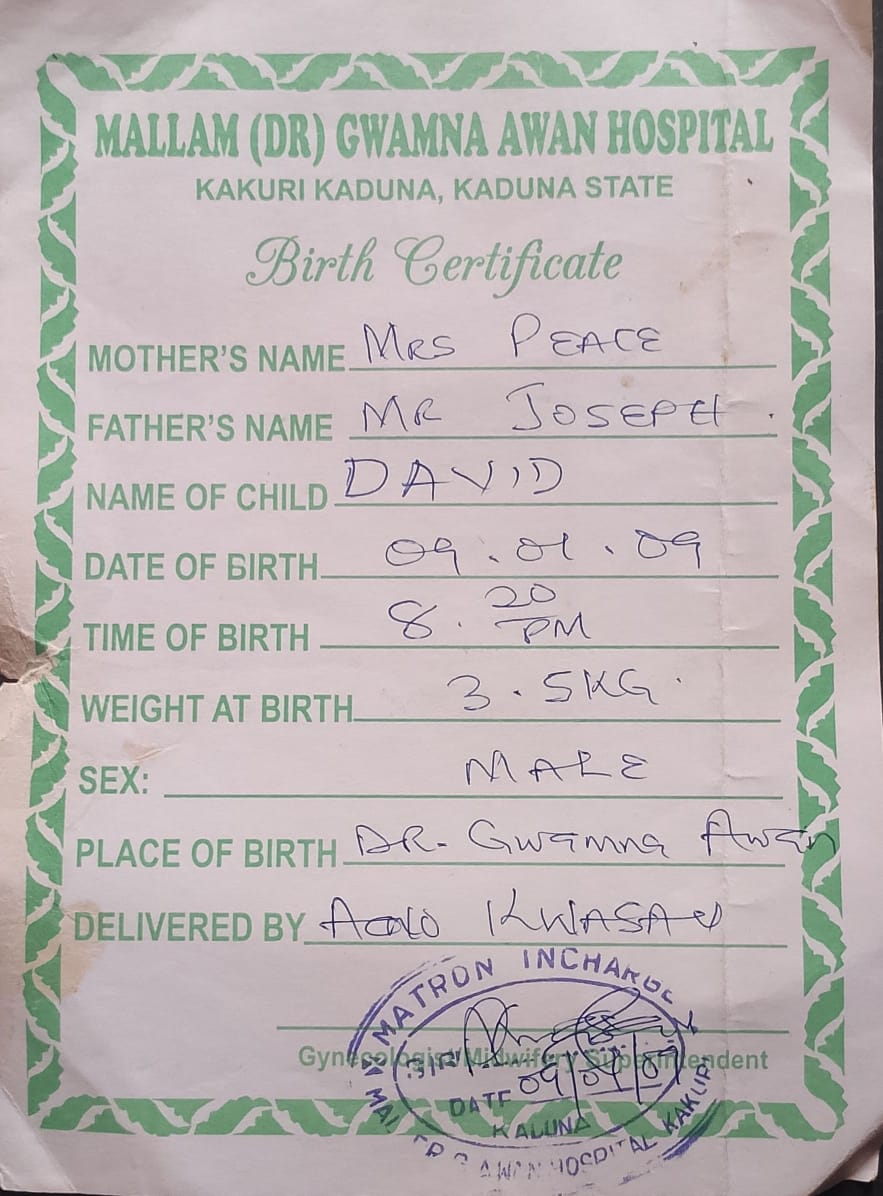 MALLAM (DR) GWAMNA AWAN HOSPITAL
KAKURI KADUNA, KADUNA STATE
Birth Certificate
MOTHER'S NAME MRS PEACE
FATHER'S NAME MR JOSEPH
NAME OF CHILD DAVID
DATE OF BIRTH 09.01.09
TIME OF BIRTH 8.20 PM
WEIGHT AT BIRTH 3.5KG
SEX: MALE
PLACE OF BIRTH DR. Gwamna Awan
DELIVERED BY KWASAU
MATRON INCHARGE
Gynecologist/Midwifery Superintendent
DATE 09/09/09
KADUNA
HOSPITAL KAKURI